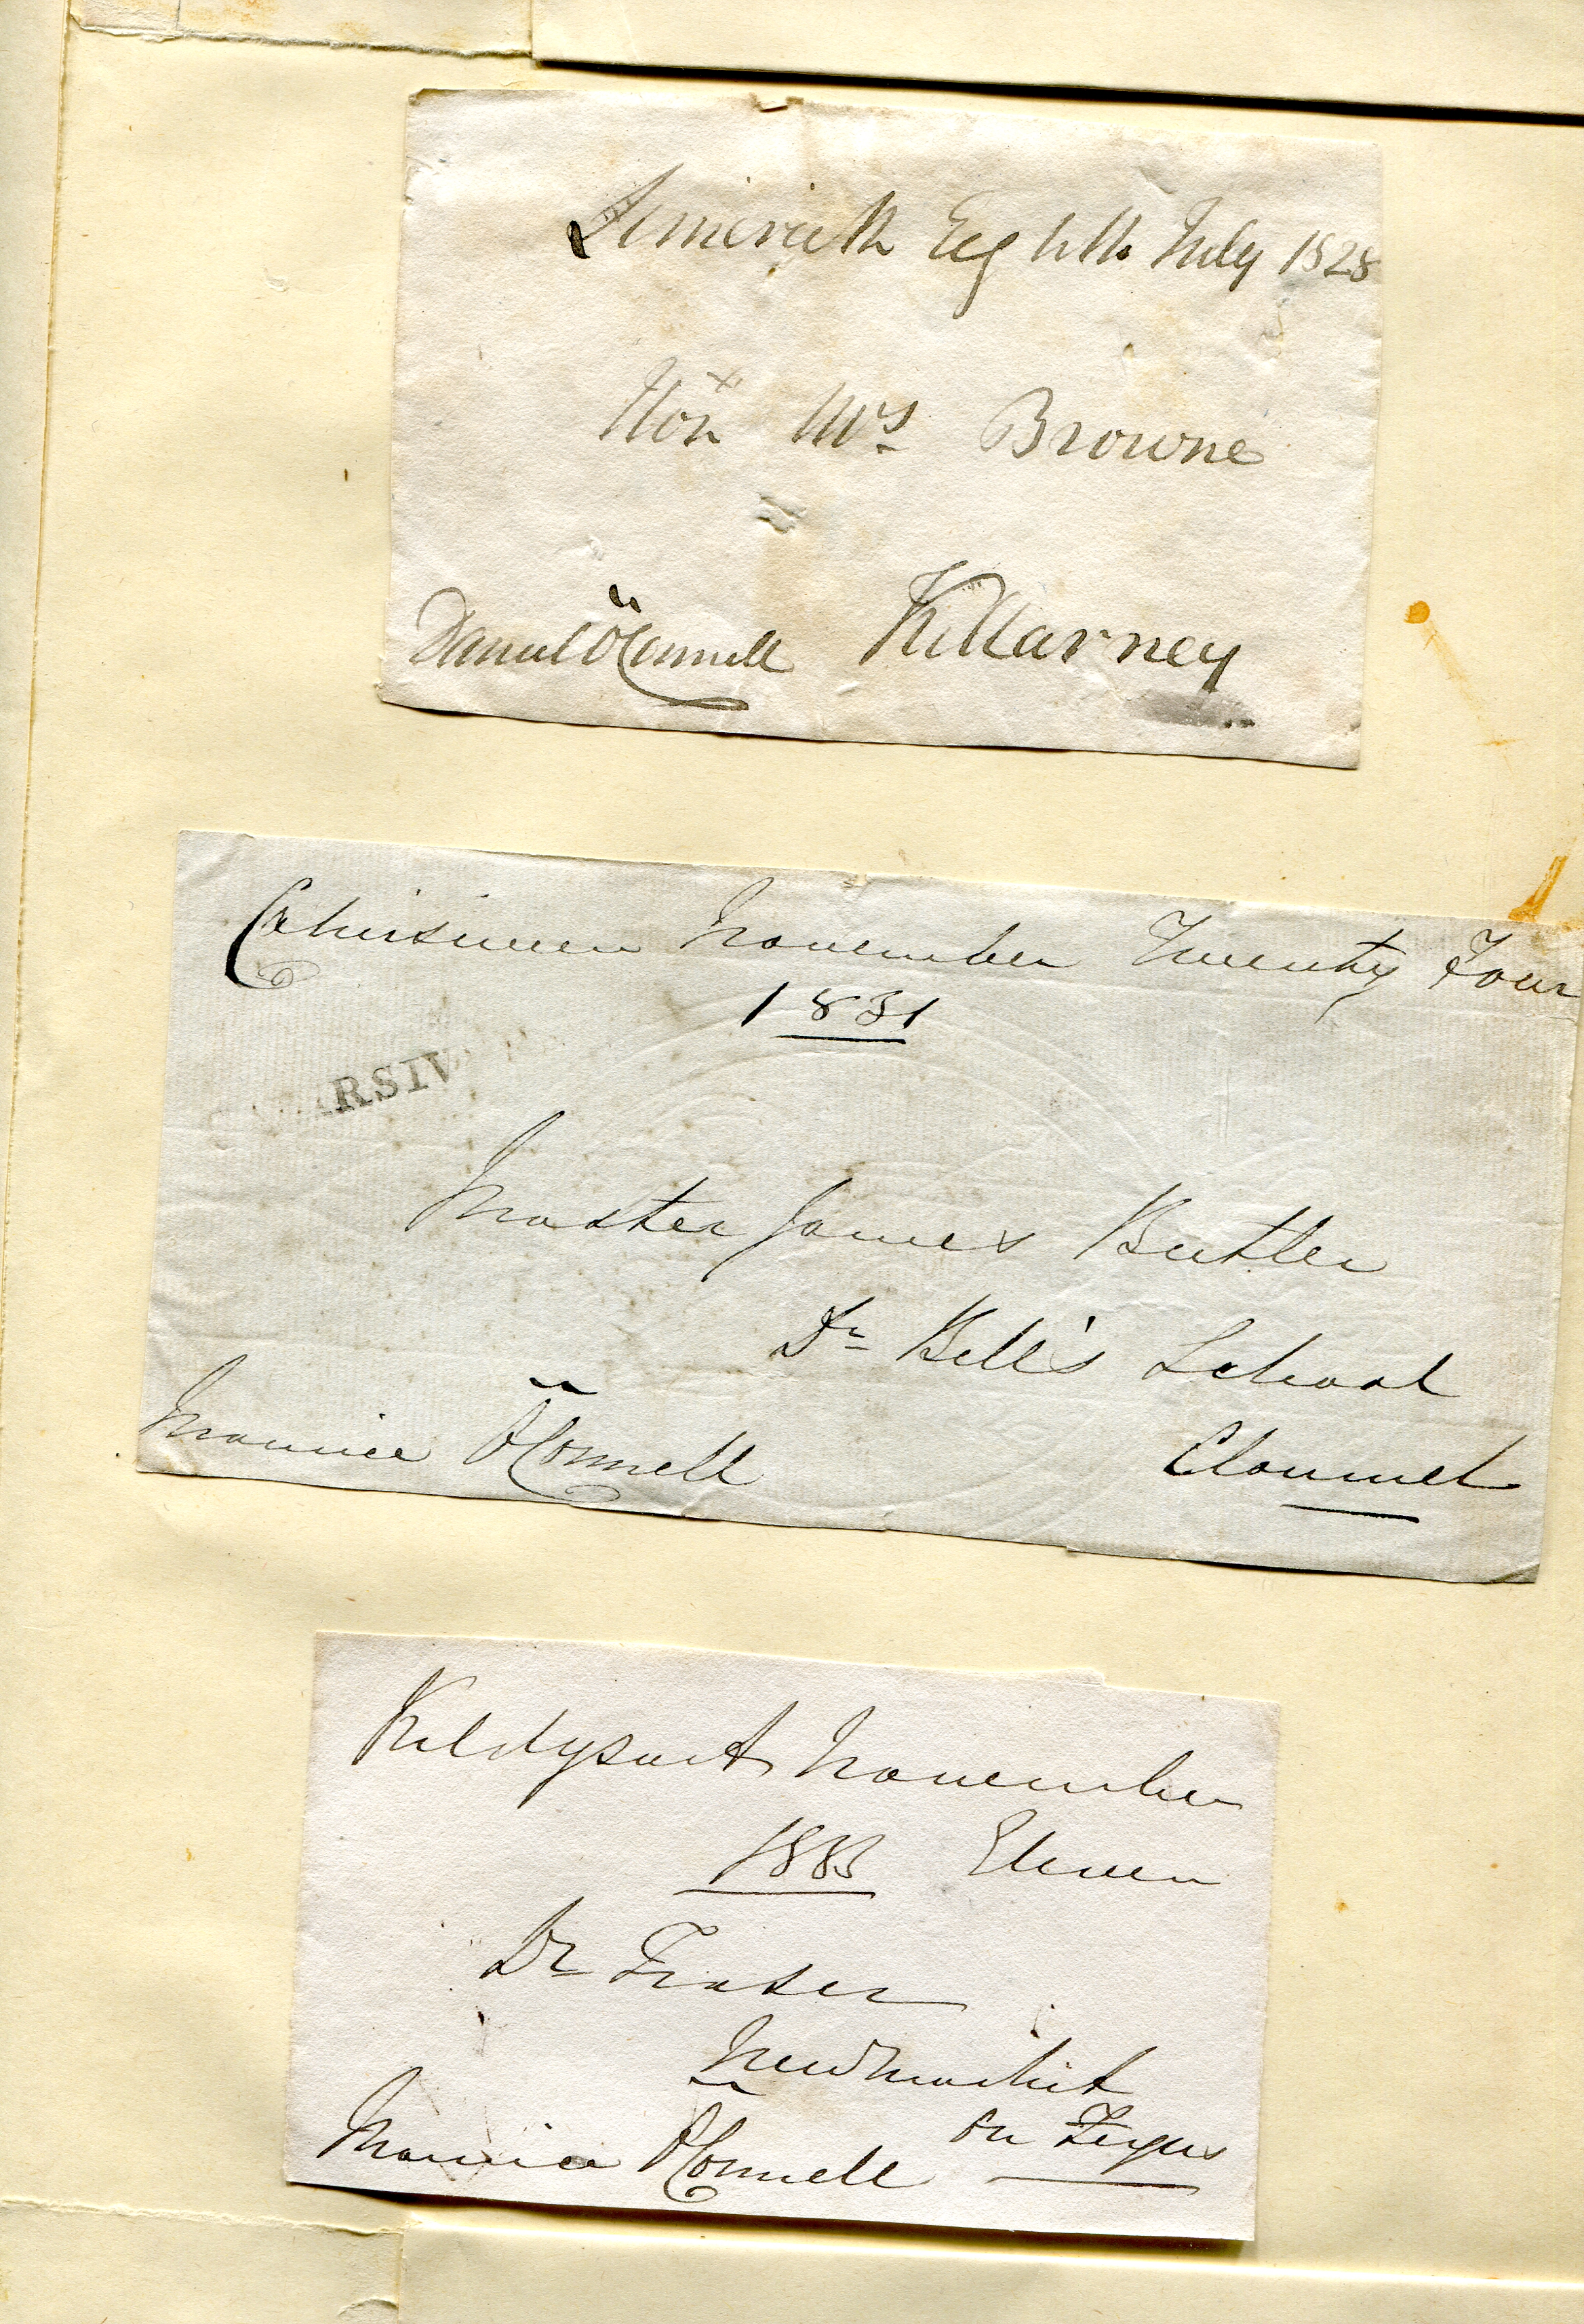 Limerick Eighth July 1828
Hon Mrs Browne
Killarney
Daniel O'Connell
Cahirsiveen November Twenty Four
1831
ARSIV
Master James Butler
Dr Bell's School
Clonmel
Maurice O'Connell
Kildysart November
1833 Eleven
Dr Fraser
Newmarket
on Fergus
Maurice O'Connell